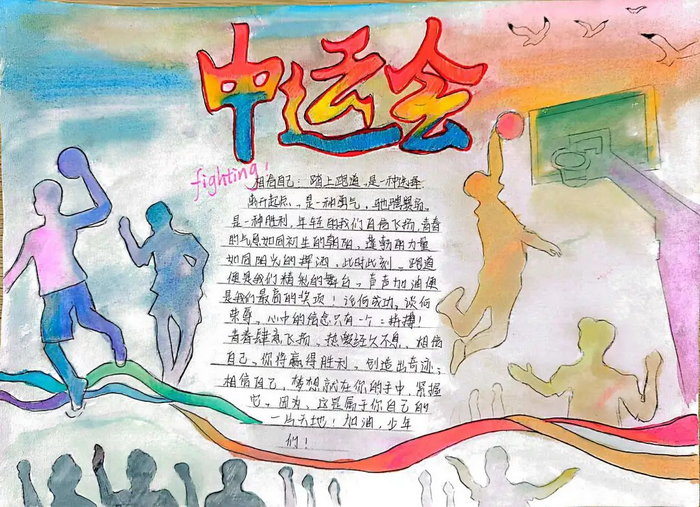 中运会
fighting!
相信自己：踏上跑道、是一种选择.
离开起点、是一种勇气，驰骋赛场
是一种胜利，年轻的我们自信飞扬，青春
的气息如同初生的朝阳，蓬勃的力量
如同阳光的挥洒，此时此刻、跑道
便是我们精彩的舞台。声声加油便
是我们最高的奖项！论何成功。谈何
荣辱、心中的信念只有一个：拼搏！
青春肆意飞扬、热 经久不息、相信
自己、你将赢得胜利、创造出奇迹，
相信自己、梦想就在你的手中，紧握
它。因为、这是属于你自己的
一片天地！加油，少年
们！